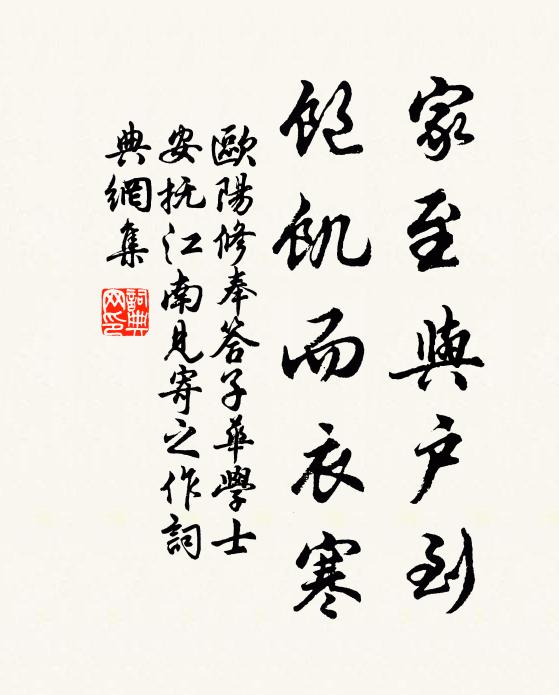 家至與戶到
飽飢而衣寒
歐陽修奉答子華學士
安抚江南見寄之作詞
典網集
詞典网印